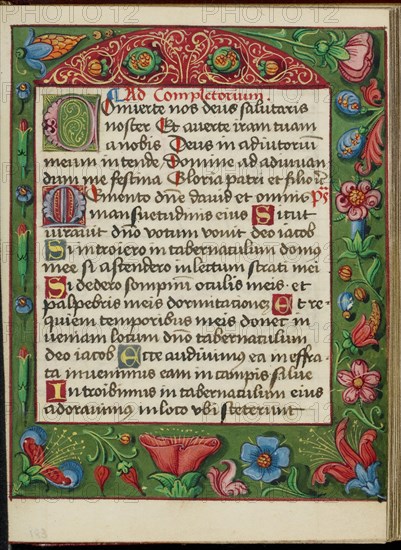 Ad Completorium.
Conuerte nos deus salutaris
noster Et auerte iram tuam
a nobis Deus in adiutoriu
meum intende Domine ad adiuuan
dum me festina Gloria patri et filio
Memento dne dauid et omnis ps
mansuetudinis eius Sicut
iurauit dno votum vouit deo iacob
Si introiero in tabernaculum domus
mee si ascendero in lectum strati mei
Si dedero sompnum oculis meis et
palpebris meis dormitationez Et re
quiem temporibus meis donec in
ueniam locum dno tabernaculum
deo iacob Ecce audiuimus ea in effra
ta inuenimus eam in campis silue
Introibimus in tabernaculum eius
adorauimus in loco vbi steterunt
PHOTO12